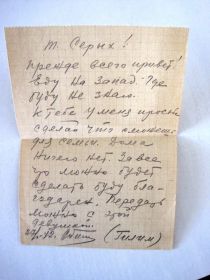 т. Серых!
Прежде всего привет!
Еду на запад. Где
буду не знаю.
К тебе у меня просьба
сделай что сможешь
для семьи. Дома
ничего нет. За все
что можно будет
сделать буду бла-
годарен. Передать
можно с этой
девушкой.
(Гилим)